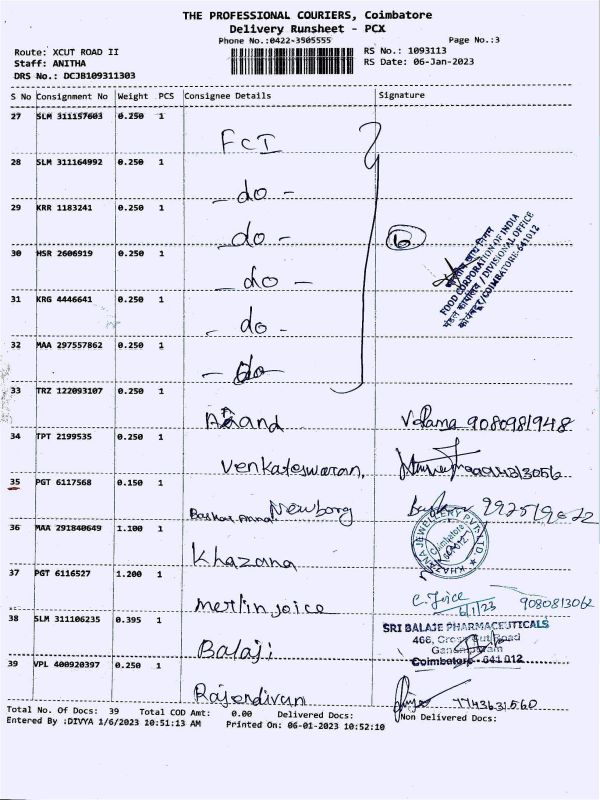 THE PROFESSIONAL COURIERS, Coimbatore
Delivery Runsheet - PCX
Phone No.:0422-3505555 Page No.:3
Route: XCUT ROAD II RS No.: 1093113
Staff: ANITHA RS Date: 06-Jan-2023
DRS No.: DCJB109311303
S No Consignment No Weight PCS Consignee Details Signature
27 SLM 311157603 0.250 1
FCI
28 SLM 311164992 0.250 1
- do -
29 KRR 1183241 0.250 1
- do -
6
30 HSR 2606919 0.250 1
- do -
FOOD CORPORATION OF INDIA
मंडल कार्यालय / DIVISIONAL OFFICE
कोयंबटूर/COIMBATORE-641012
31 KRG 4446641 0.250 1
- do -
32 MAA 297557862 0.250 1
- do -
33 TRZ 122093107 0.250 1
Anand 9080981948
34 TPT 2199535 0.250 1
Venkateswaran,
35 PGT 6117568 0.150 1
Newborg
KHAZANA JEWELLERY PVT LTD
Coimbatore
36 MAA 291840649 1.100 1
Khazana
37 PGT 6116527 1.200 1
Merlin joice C. Joice 6/1/23 9080813062
38 SLM 311106235 0.395 1
SRI BALAJE PHARMACEUTICALS
466, Cross Cut Road
Coimbatore - 641 012
Balaji
39 VPL 400920397 0.250 1
7743631560
Total No. Of Docs: 39 Total COD Amt: 0.00 Delivered Docs: Non Delivered Docs:
Entered By :DIVYA 1/6/2023 10:51:13 AM Printed On: 06-01-2023 10:52:10